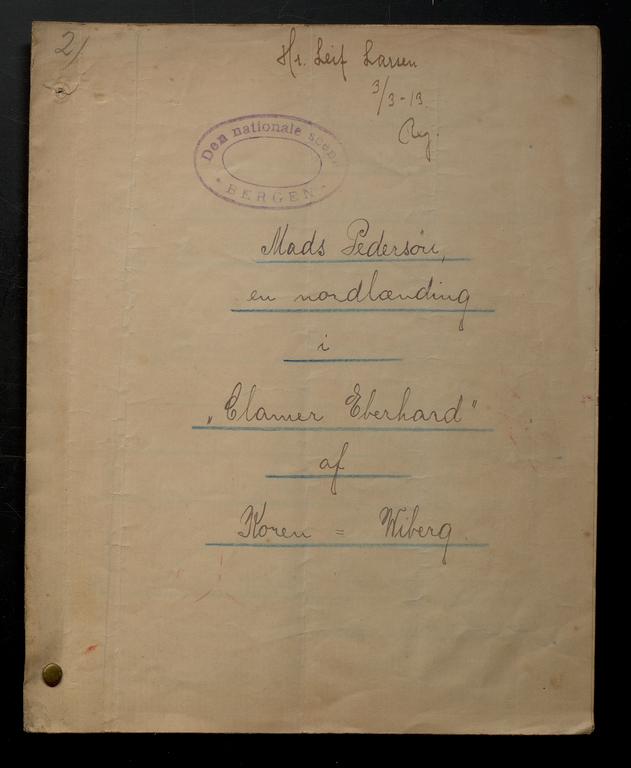 2)
Hr. Leif Larsen
3/3-13.
Den nationale scene
BERGEN
Mads Pedersön,
en nordlænding
i
„Clamer Eberhard"
af
Koren = Wiberg